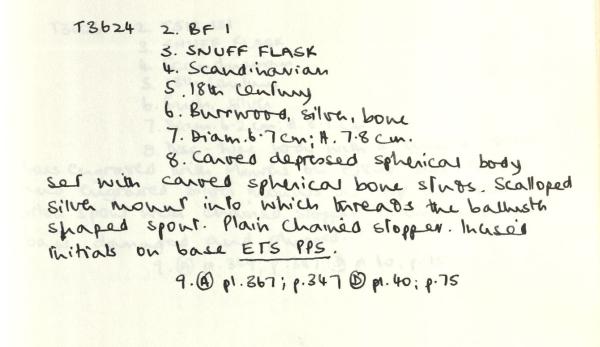 T3624 2. BF 1
3. SNUFF FLASK
4. Scandinavian
5. 18th Century
6. Burrwood, silver, bone
7. Diam. 6.7cm; H. 7.8cm.
8. Carved depressed spherical body
set with carved spherical bone studs. Scalloped
silver mount into which threads the baluster
shaped spout. Plain chained stopper. Incised
initials on base ETS PPS.
9. Ⓐ pl. 367; p. 347 Ⓓ pl. 40; p. 75